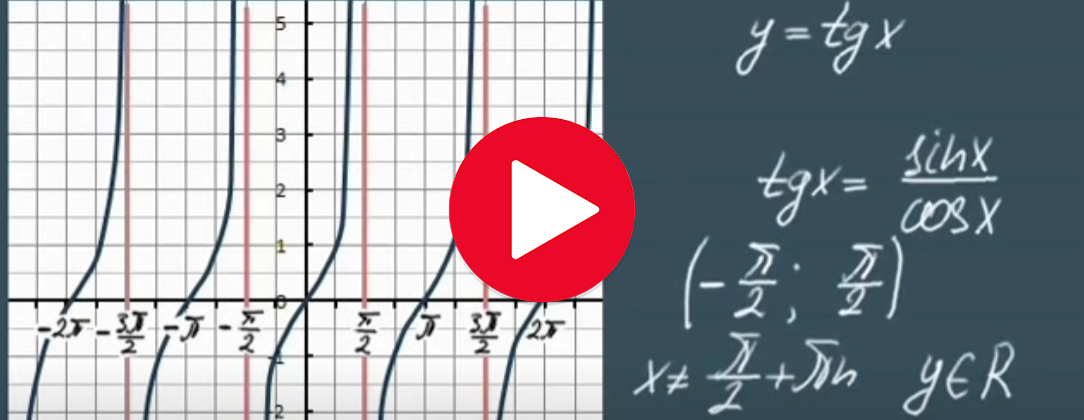 5
4
3
2
1
0
-2π -3π/2 -π -π/2 π/2 π 3π/2 2π
-1
-2
y = tg x
tg x = sin x / cos x
(-π/2; π/2)
x ≠ π/2 + πn y ∈ R